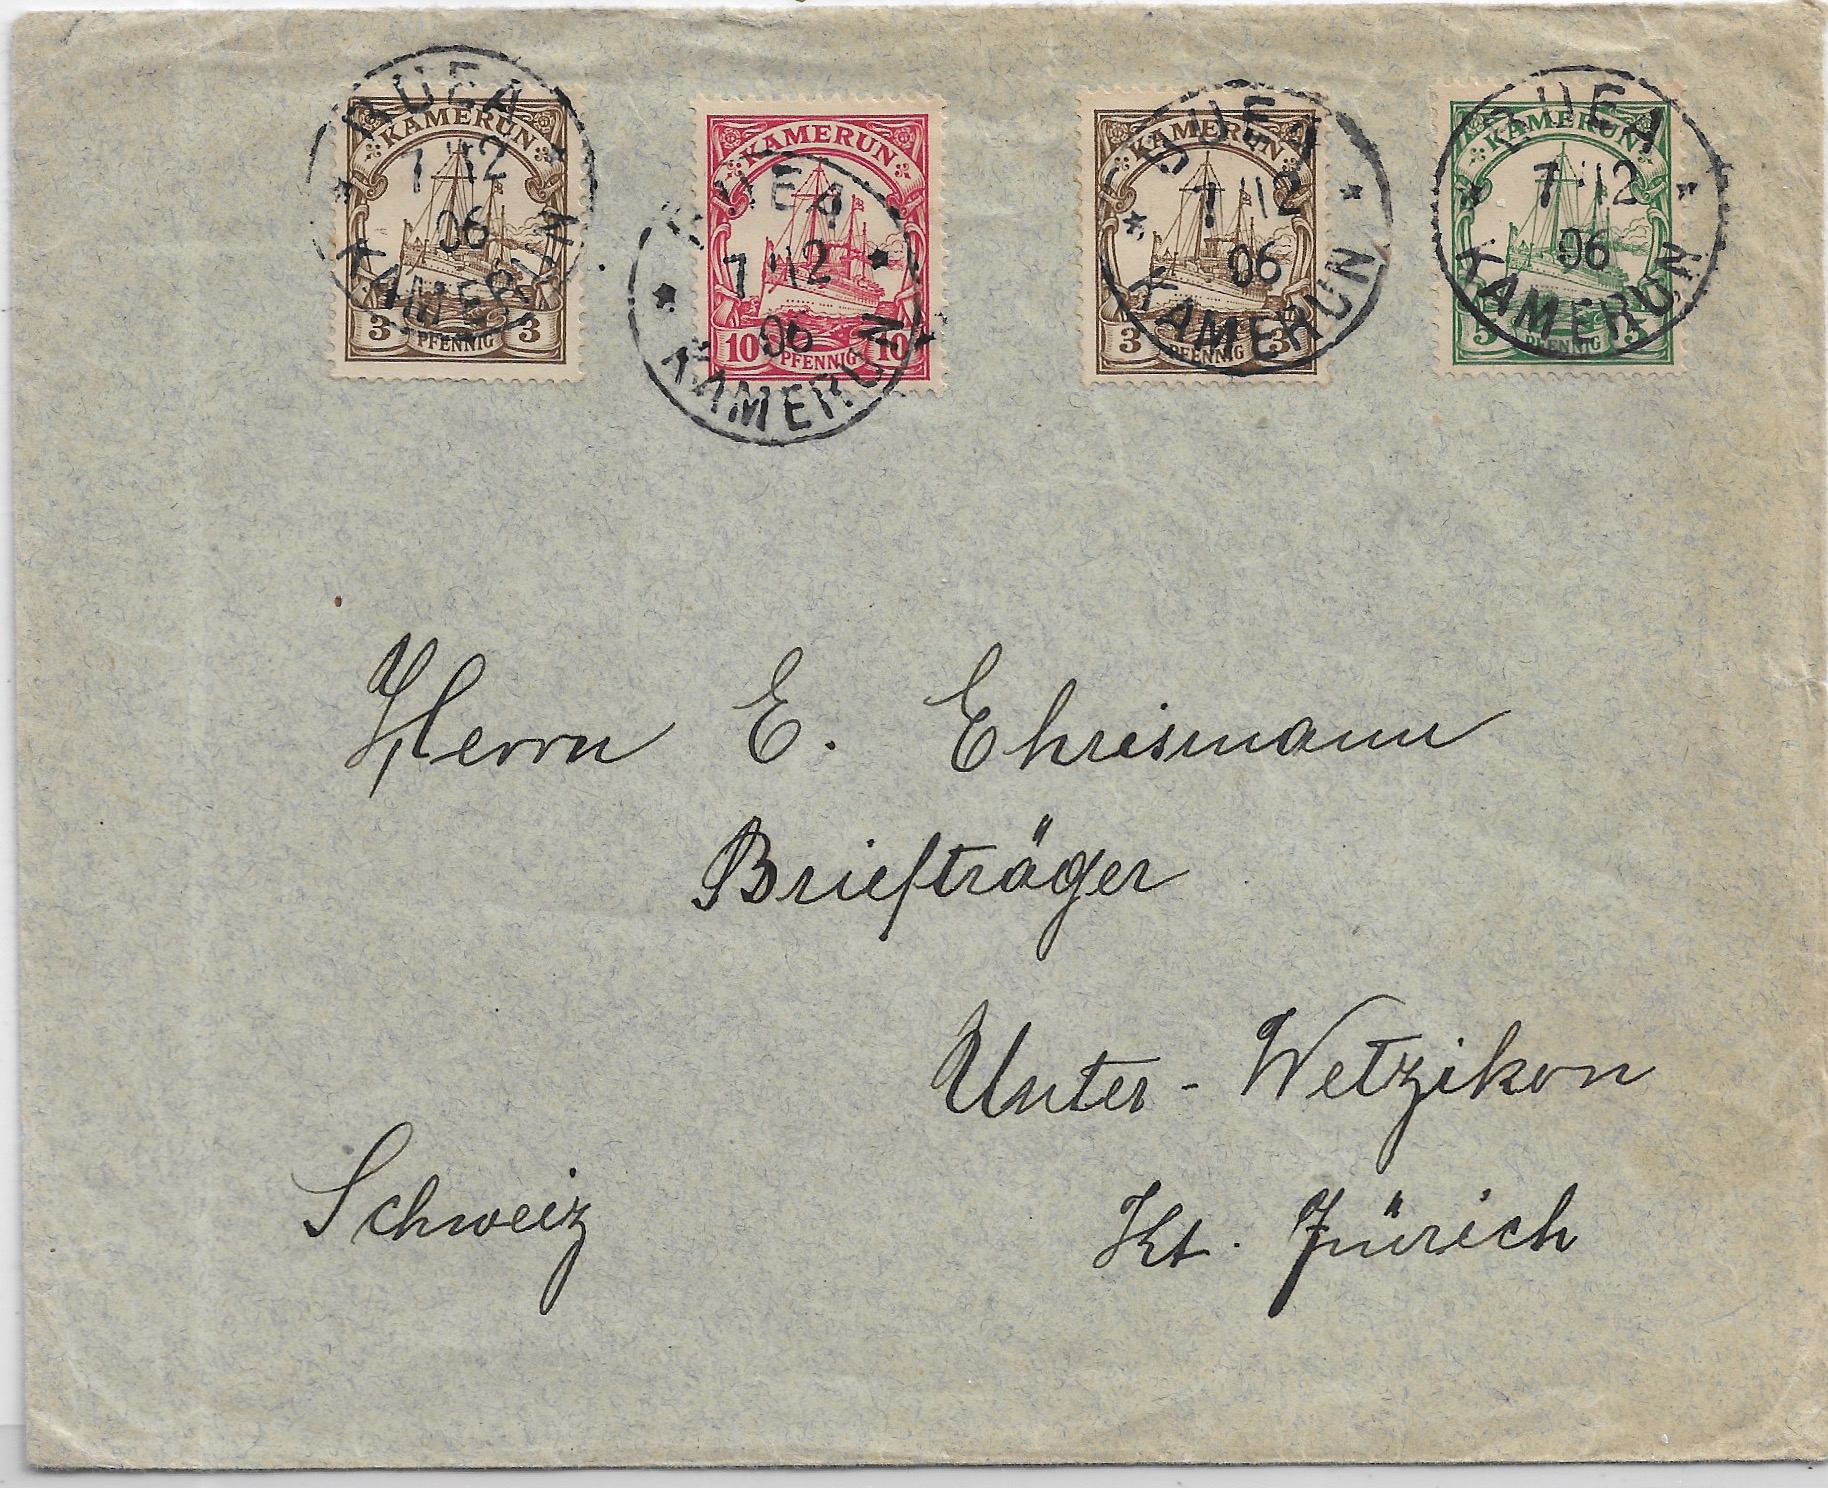 KAMERUN
3 PFENNIG 3
BUEA
7 12
06
KAMERUN
KAMERUN
10 PFENNIG 10
BUEA
7 12
06
KAMERUN
KAMERUN
3 PFENNIG 3
BUEA
7 12
06
KAMERUN
KAMERUN
5 PFENNIG 5
BUEA
7 12
06
KAMERUN
Herrn E. Ehrismann
Briefträger
Unter-Wetzikon
Schweiz Kt. Zürich